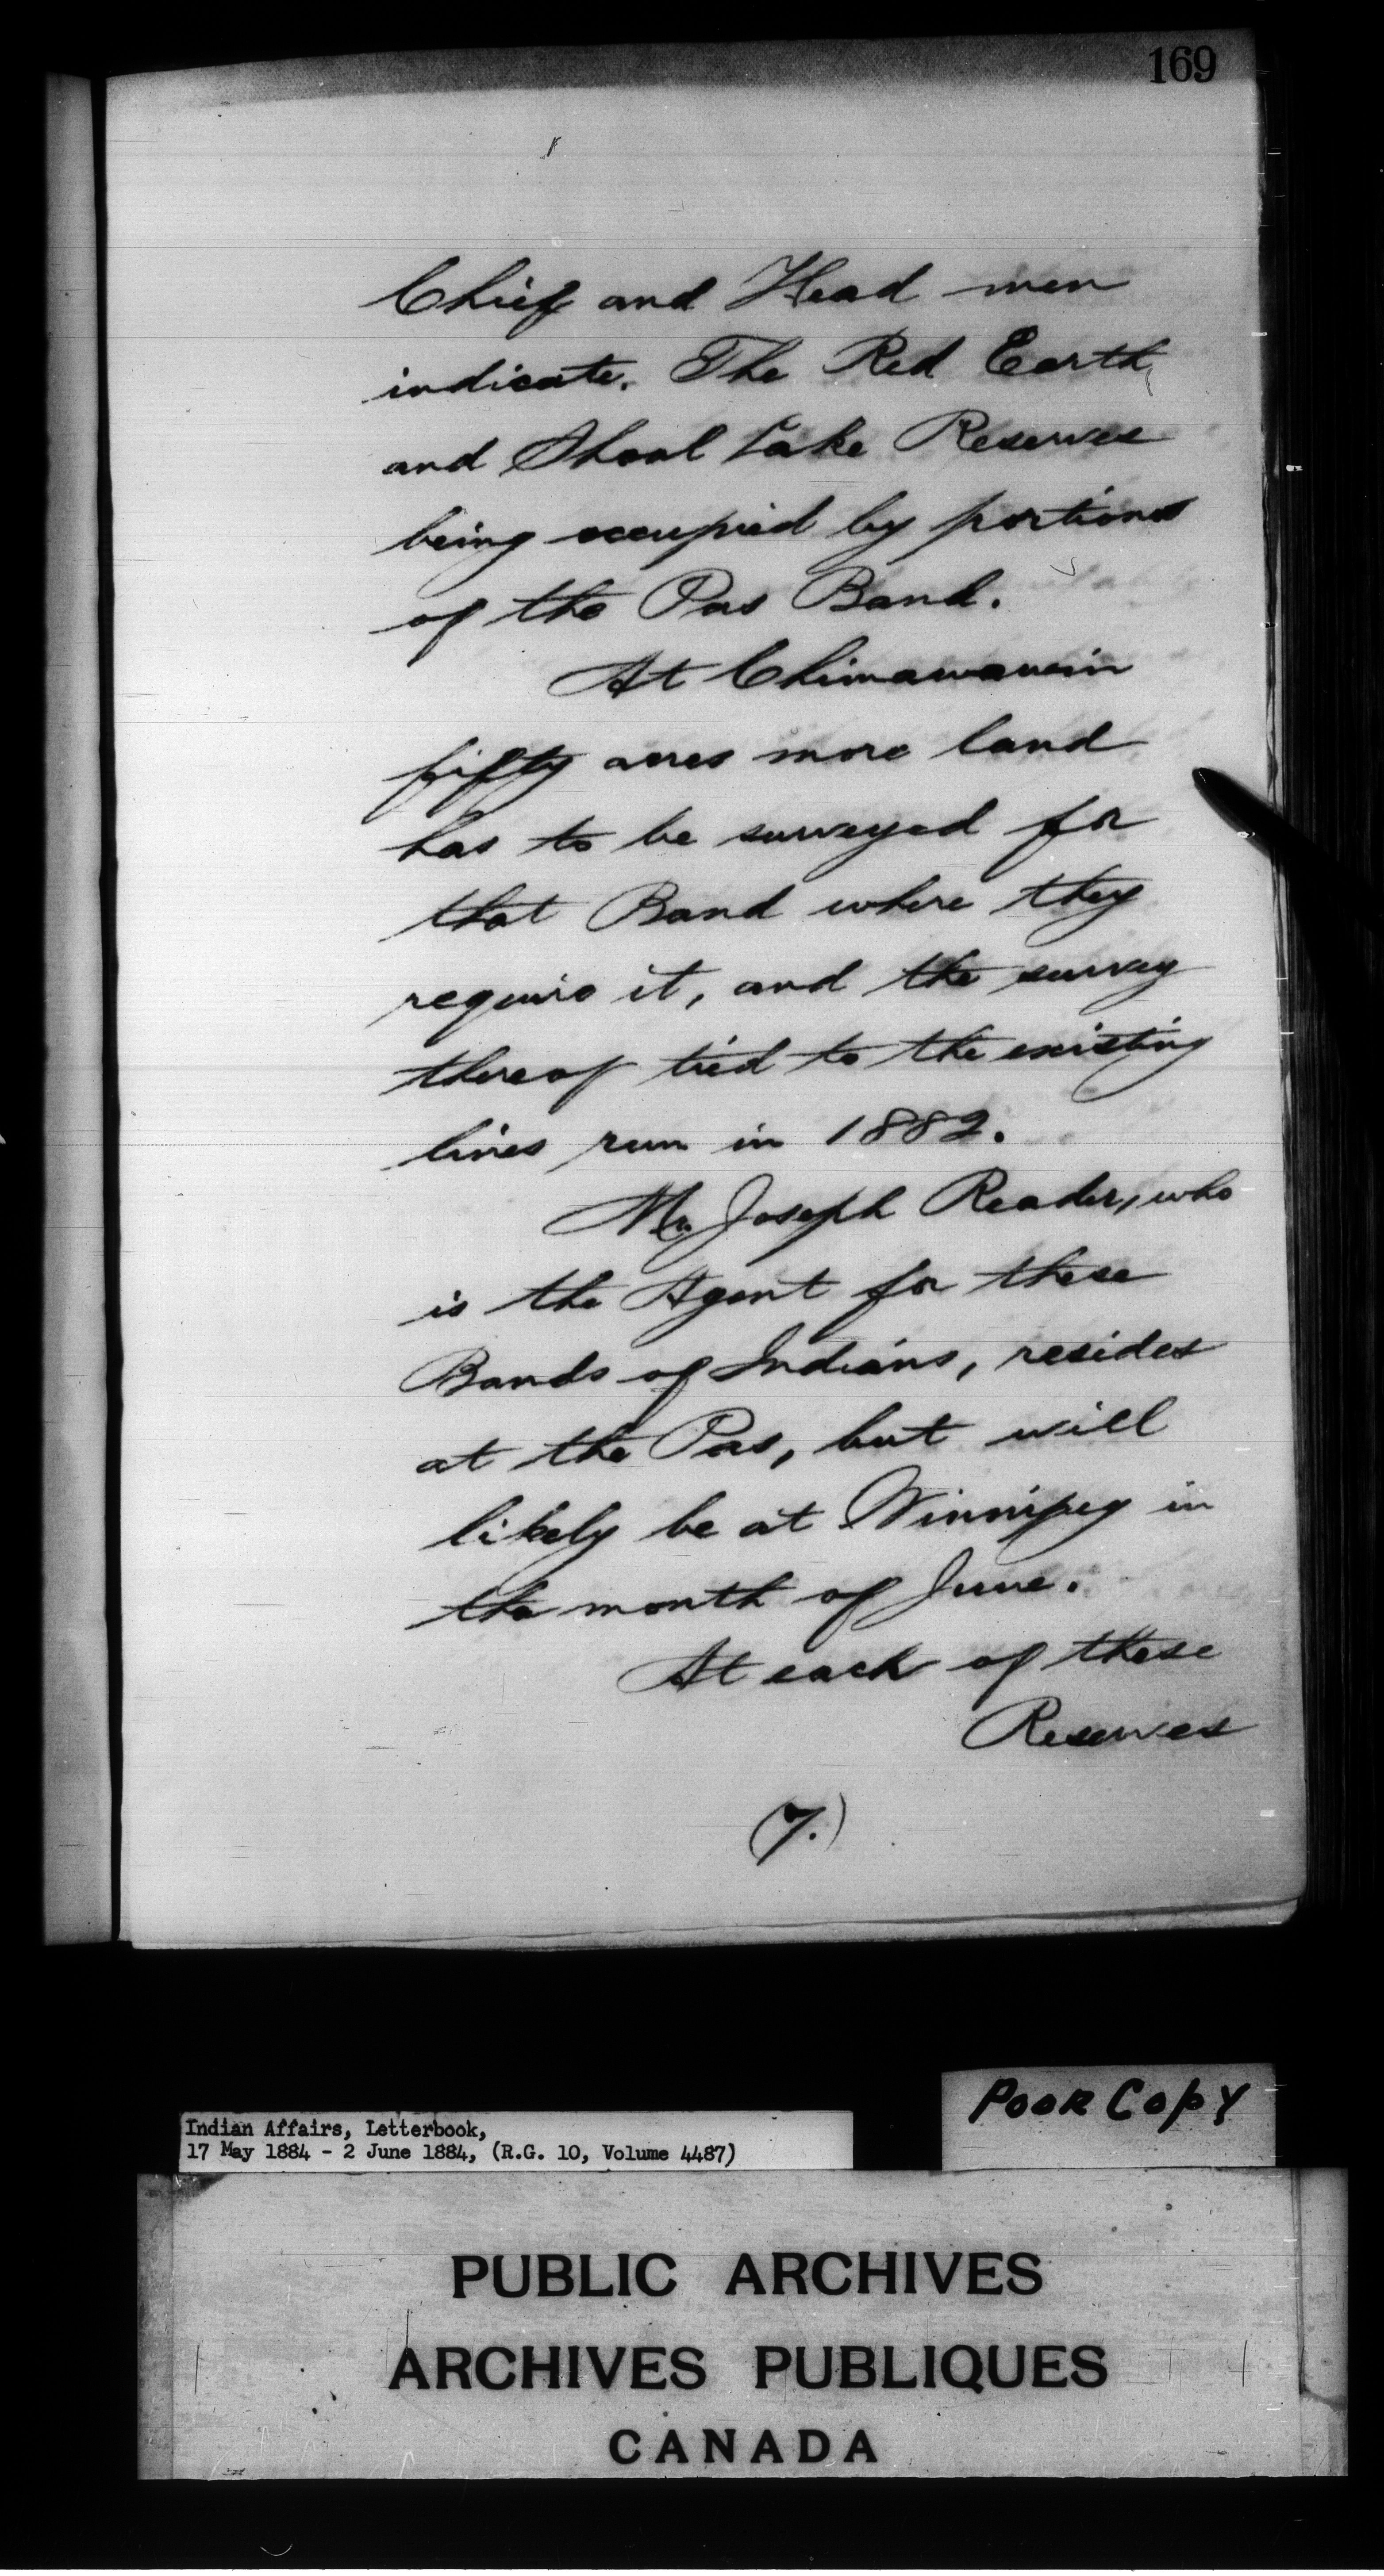 169
Chief and Head men
indicate. The Red Earth
and Shoal Lake Reserves
being occupied by portions
of the Pas Band.
At Chimawawin
fifty acres more land
has to be surveyed for
that Band where they
require it, and the survey
thereof tied to the existing
lines run in 1882.
Mr. Joseph Reader, who
is the Agent for these
Bands of Indians, resides
at the Pas, but will
likely be at Winnipeg in
the month of June.
At each of these
Reserves
(7.)
POOR COPY
Indian Affairs, Letterbook,
17 May 1884 - 2 June 1884, (R.G. 10, Volume 4487)
PUBLIC ARCHIVES
ARCHIVES PUBLIQUES
CANADA